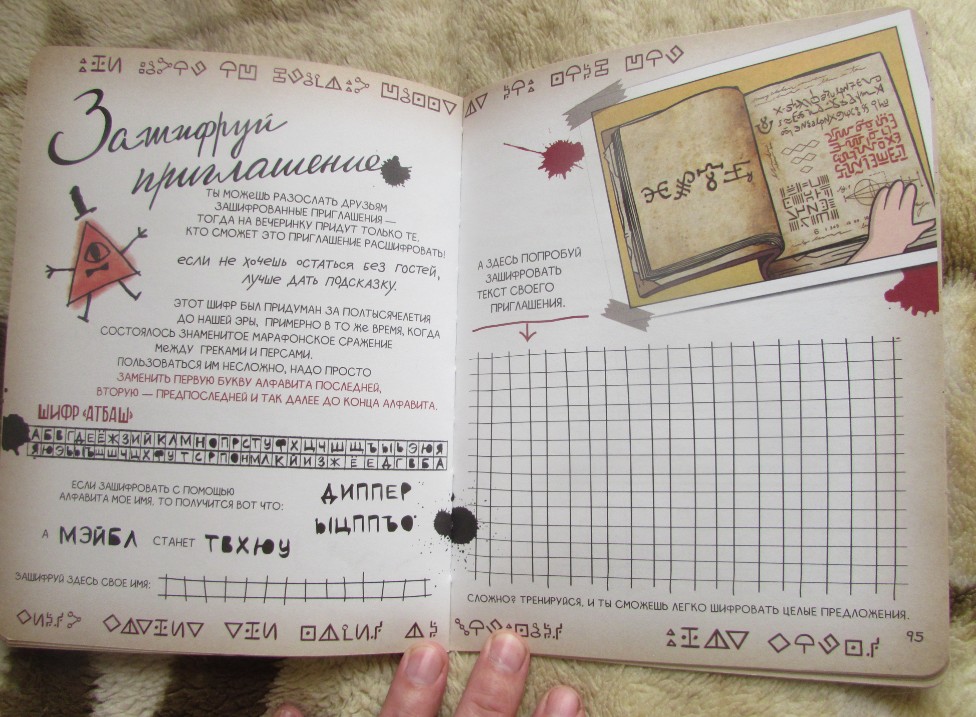 Зашифруй
приглашение
ТЫ МОЖЕШЬ РАЗОСЛАТЬ ДРУЗЬЯМ
ЗАШИФРОВАННЫЕ ПРИГЛАШЕНИЯ —
ТОГДА НА ВЕЧЕРИНКУ ПРИДУТ ТОЛЬКО ТЕ,
КТО СМОЖЕТ ЭТО ПРИГЛАШЕНИЕ РАСШИФРОВАТЬ!
если не хочешь остаться без гостей,
лучше дать подсказку.
ЭТОТ ШИФР БЫЛ ПРИДУМАН ЗА ПОЛТЫСЯЧЕЛЕТИЯ
ДО НАШЕЙ ЭРЫ, ПРИМЕРНО В ТО ЖЕ ВРЕМЯ, КОГДА
СОСТОЯЛОСЬ ЗНАМЕНИТОЕ МАРАФОНСКОЕ СРАЖЕНИЕ
МЕЖДУ ГРЕКАМИ И ПЕРСАМИ.
ПОЛЬЗОВАТЬСЯ ИМ НЕСЛОЖНО, НАДО ПРОСТО
ЗАМЕНИТЬ ПЕРВУЮ БУКВУ АЛФАВИТА ПОСЛЕДНЕЙ,
ВТОРУЮ — ПРЕДПОСЛЕДНЕЙ И ТАК ДАЛЕЕ ДО КОНЦА АЛФАВИТА.
ШИФР «АТБАШ»
А Б В Г Д Е Ё Ж З И Й К Л М Н О П Р С Т У Ф Х Ц Ч Ш Щ Ъ Ы Ь Э Ю Я
Я Ю Э Ь Ы Ъ Щ Ш Ч Ц Х Ф У Т С Р П О Н М Л К Й И З Ж Ё Е Д Г В Б А
ЕСЛИ ЗАШИФРОВАТЬ С ПОМОЩЬЮ
АЛФАВИТА МОЕ ИМЯ, ТО ПОЛУЧИТСЯ ВОТ ЧТО:
ДИППЕР
ЫЦППЪО
А МЭЙБЛ СТАНЕТ ТВХЮУ
ЗАШИФРУЙ ЗДЕСЬ СВОЕ ИМЯ:
А ЗДЕСЬ ПОПРОБУЙ
ЗАШИФРОВАТЬ
ТЕКСТ СВОЕГО
ПРИГЛАШЕНИЯ.
СЛОЖНО? ТРЕНИРУЙСЯ, И ТЫ СМОЖЕШЬ ЛЕГКО ШИФРОВАТЬ ЦЕЛЫЕ ПРЕДЛОЖЕНИЯ.
95